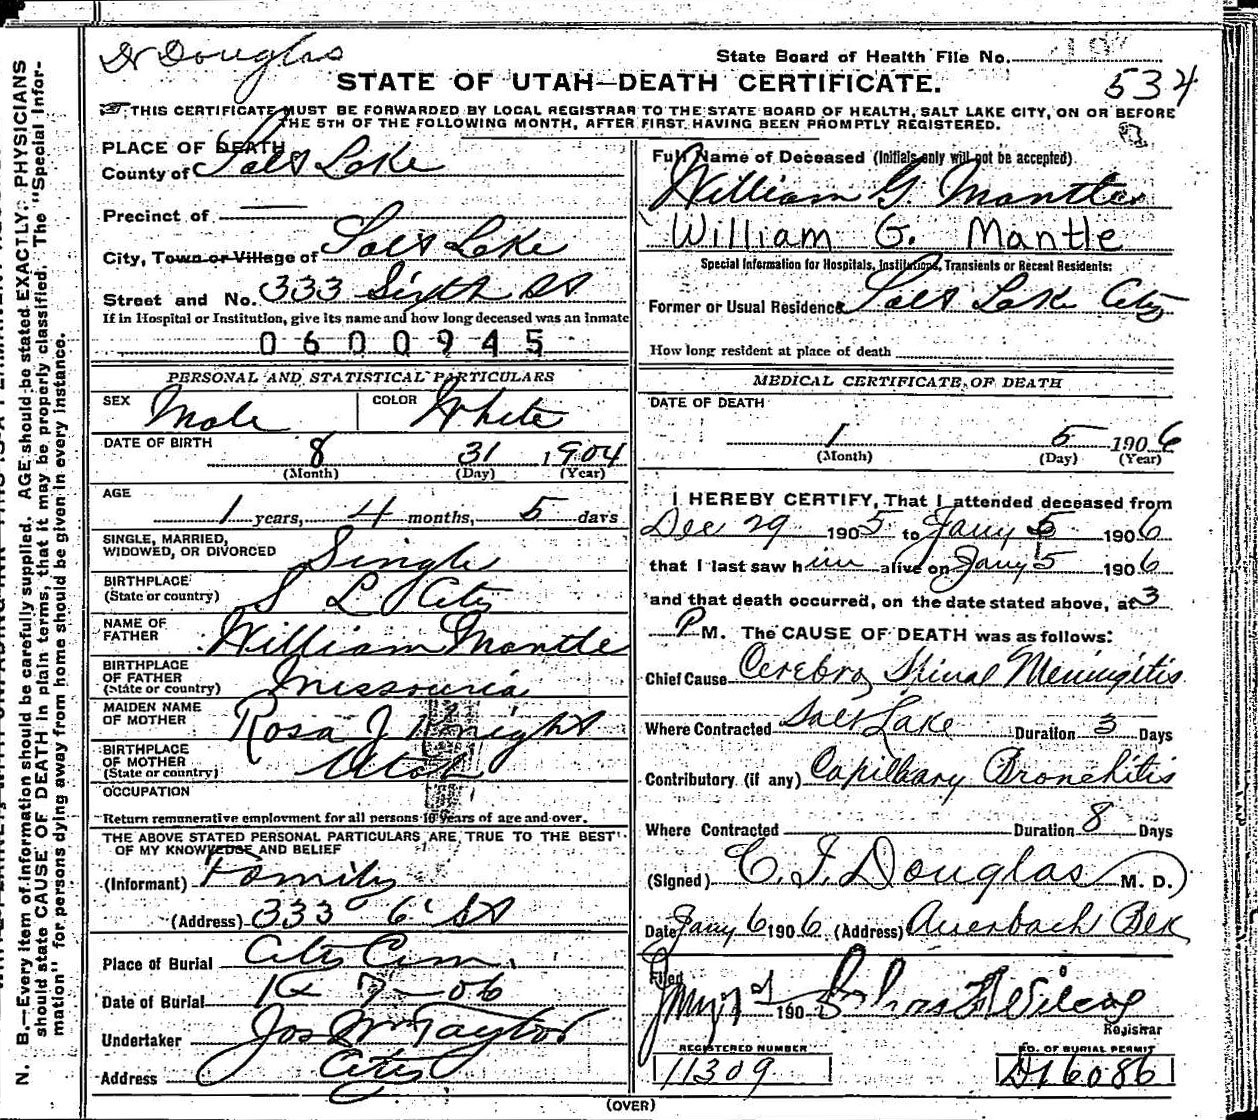 Dr Douglas
State Board of Health File No.
534
STATE OF UTAH—DEATH CERTIFICATE.
THIS CERTIFICATE MUST BE FORWARDED BY LOCAL REGISTRAR TO THE STATE BOARD OF HEALTH, SALT LAKE CITY, ON OR BEFORE
THE 5TH OF THE FOLLOWING MONTH, AFTER FIRST HAVING BEEN PROMPTLY REGISTERED.
PLACE OF DEATH
County of Salt Lake
Precinct of —
City, Town or Village of Salt Lake
Street and No. 333 Sixth St
If in Hospital or Institution, give its name and how long deceased was an inmate
0600945
PERSONAL AND STATISTICAL PARTICULARS
SEX Male COLOR White
DATE OF BIRTH
8 31 1904
(Month) (Day) (Year)
AGE
1 years, 4 months, 5 days
SINGLE, MARRIED,
WIDOWED, OR DIVORCED Single
BIRTHPLACE
(State or country) S L City
NAME OF
FATHER William Mantle
BIRTHPLACE
OF FATHER
(State or country) Missouria
MAIDEN NAME
OF MOTHER Rosa J Knight
BIRTHPLACE
OF MOTHER
(State or country) Utah
OCCUPATION
Return remunerative employment for all persons 10 years of age and over.
THE ABOVE STATED PERSONAL PARTICULARS ARE TRUE TO THE BEST
OF MY KNOWLEDGE AND BELIEF
(Informant) Family
(Address) 333 6' St
Place of Burial City Cem.
Date of Burial 7—06
Undertaker Jos Wm Taylor
Address City
Full Name of Deceased (Initials only will not be accepted)
William G. Mantle
William G. Mantle
Special Information for Hospitals, Institutions, Transients or Recent Residents:
Former or Usual Residence Salt Lake City
How long resident at place of death
MEDICAL CERTIFICATE OF DEATH
DATE OF DEATH
1 5 1906
(Month) (Day) (Year)
I HEREBY CERTIFY, That I attended deceased from
Dec 29 1905 to Jany 5 1906
that I last saw him alive on Jany 5 1906
and that death occurred, on the date stated above, at 3
P M. The CAUSE OF DEATH was as follows:
Chief Cause Cerebro Spinal Meningitis
Where Contracted Salt Lake Duration 3 Days
Contributory (if any) Capillary Bronchitis
Where Contracted Duration 8 Days
(Signed) C. F. Douglas M. D.
Date Jany 6 1906 (Address) Auerbach Blk
Filed
190
Registrar
REGISTERED NUMBER
11309
NO. OF BURIAL PERMIT
D16086
(OVER)
N. B.—Every item of information should be carefully supplied. AGE should be stated EXACTLY. PHYSICIANS
should state CAUSE OF DEATH in plain terms, that it may be properly classified. The "Special Infor-
mation" for persons dying away from home should be given in every instance.